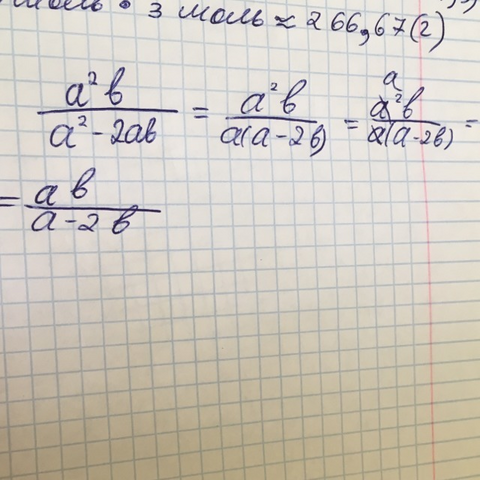 моль · 3 моль ≈ 266,67(г)
a²b / a² - 2ab = a²b / a(a - 2b) = a a²b / a(a - 2b) =
= ab / a - 2b